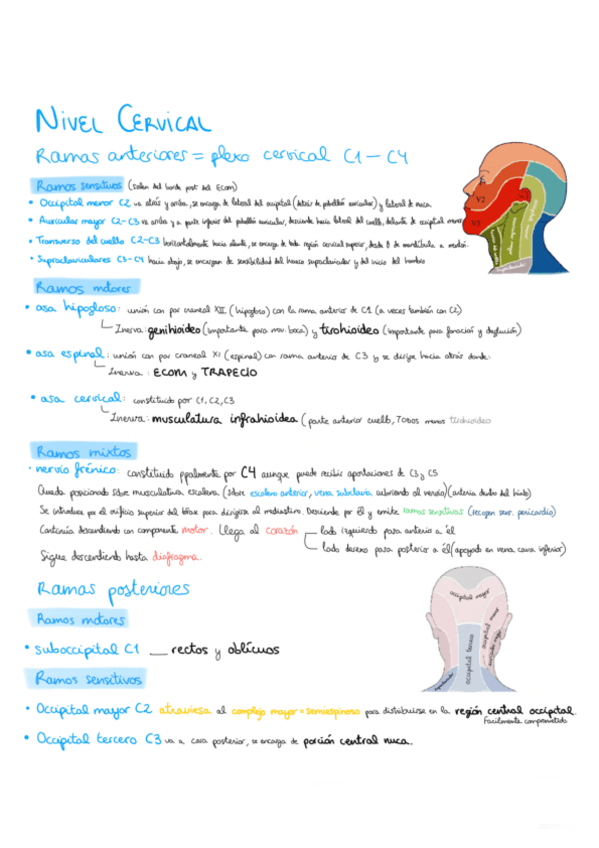 NIVEL CERVICAL
Ramas anteriores = plexo cervical C1 - C4
Ramos sensitivos (salen del borde post del ECOM)
• Occipital menor C2 va atrás y arriba, se encarga de lateral del occipital (detrás de pabellón auricular) y lateral de nuca.
• Auricular mayor C2-C3 va arriba y a parte inferior del pabellón auricular, desciende hacia lateral del cuello, delante de occipital menor
• Transverso del cuello C2-C3 horizontalmente hacia delante, se encarga de toda región cervical superior, desde B de mandíbula a
• Supraclaviculares C3-C4 hacia abajo, se encargan de sensibilidad del hueco supraclavicular y del inicio del hombro
V2
V3
occipital mayor
Ramos motores
• asa hipogloso: unión con par craneal XII (hipogloso) con la rama anterior de C1 (a veces también con C2)
Inerva: genihioideo (importante para mov. boca) y tirohioideo (importante para fonación y deglución)
• asa espinal: unión con par craneal XI (espinal) con rama anterior de C3 y se dirige hacia atrás donde:
Inerva: ECOM y TRAPECIO
• asa cervical: constituido por C1, C2, C3
Inerva: musculatura infrahioidea (parte anterior cuello, TODOS menos tirohioideo
Ramos mixtos
• nervio frénico: constituido ppalmente por C4 aunque puede recibir aportaciones de C3 y C5
Queda posicionado sobre musculatura escalena (sobre escaleno anterior, vena subclavia cubriendo al nervio) (arteria dentro del hiato)
Se introduce por el orificio superior del tórax para dirigirse al mediastino. Desciende por él y emite ramos sensitivos (recogen sens. pericardio)
Continúa descendiendo con componente motor. Llega al corazón
lado izquierdo para anterior a él
lado derecho para posterior a él (apoyado en vena cava inferior)
Sigue descendiendo hasta diafragma.
Ramas posteriores
Ramos motores
• suboccipital C1 __ rectos y oblícuos
Ramos sensitivos
occipital mayor
occipital menor
auricular mayor
occipital tercero
• Occipital mayor C2 atraviesa al complejo mayor = semiespinoso para distribuirse en la región central occipital.
Facilmente comprometido
• Occipital tercero C3 va a cara posterior, se encarga de porción central nuca.